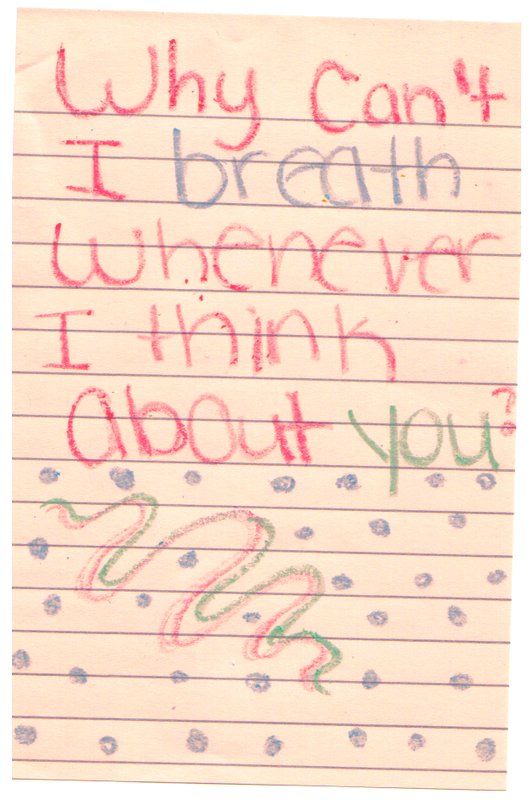 Why Can't
I breath
Whenever
I think
About you?